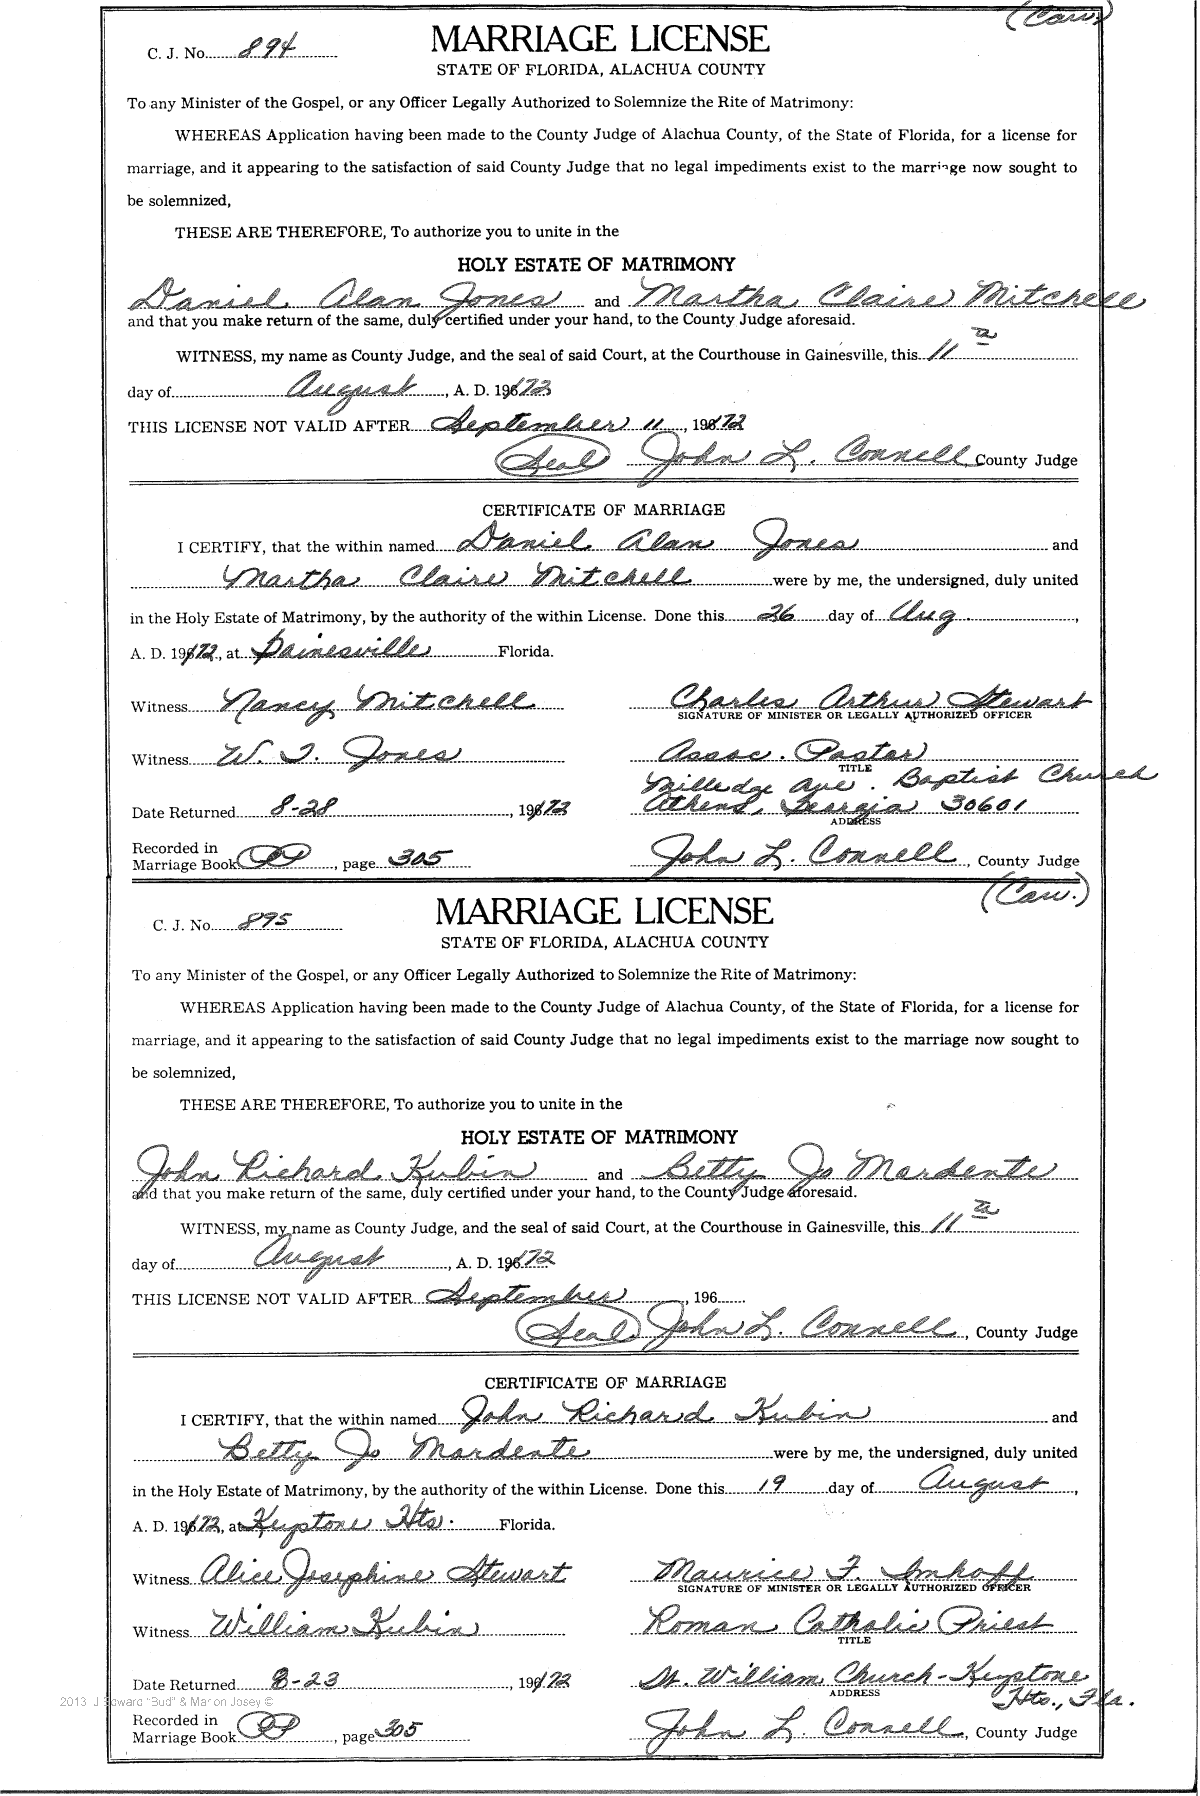 (Caw.)
C. J. No. 894 MARRIAGE LICENSE
STATE OF FLORIDA, ALACHUA COUNTY
To any Minister of the Gospel, or any Officer Legally Authorized to Solemnize the Rite of Matrimony:
WHEREAS Application having been made to the County Judge of Alachua County, of the State of Florida, for a license for
marriage, and it appearing to the satisfaction of said County Judge that no legal impediments exist to the marriage now sought to
be solemnized,
THESE ARE THEREFORE, To authorize you to unite in the
HOLY ESTATE OF MATRIMONY
Daniel Alan Jones and Martha Claire Mitchell
and that you make return of the same, duly certified under your hand, to the County Judge aforesaid.
WITNESS, my name as County Judge, and the seal of said Court, at the Courthouse in Gainesville, this 11th
day of August, A. D. 1972
THIS LICENSE NOT VALID AFTER September 11, 1972
(Seal) John L. Connell County Judge
CERTIFICATE OF MARRIAGE
I CERTIFY, that the within named Daniel Alan Jones and
Martha Claire Mitchell were by me, the undersigned, duly united
in the Holy Estate of Matrimony, by the authority of the within License. Done this 26 day of Aug.,
A. D. 1972, at Gainesville Florida.
Witness Nancy Mitchell Charles Arthur Stewart
SIGNATURE OF MINISTER OR LEGALLY AUTHORIZED OFFICER
Witness W. T. Jones Assoc. Pastor
TITLE
Milledge Ave. Baptist Church
Date Returned 8-28, 1972 Athens, Georgia 30601
ADDRESS
Recorded in
Marriage Book, page 305 John L. Connell, County Judge
(Caw.)
C. J. No. 895 MARRIAGE LICENSE
STATE OF FLORIDA, ALACHUA COUNTY
To any Minister of the Gospel, or any Officer Legally Authorized to Solemnize the Rite of Matrimony:
WHEREAS Application having been made to the County Judge of Alachua County, of the State of Florida, for a license for
marriage, and it appearing to the satisfaction of said County Judge that no legal impediments exist to the marriage now sought to
be solemnized,
THESE ARE THEREFORE, To authorize you to unite in the
HOLY ESTATE OF MATRIMONY
John Richard Kubin and Betty Jo Mardente
and that you make return of the same, duly certified under your hand, to the County Judge aforesaid.
WITNESS, my name as County Judge, and the seal of said Court, at the Courthouse in Gainesville, this 11th
day of August, A. D. 1972
THIS LICENSE NOT VALID AFTER September, 196
(Seal) John L. Connell, County Judge
CERTIFICATE OF MARRIAGE
I CERTIFY, that the within named John Richard Kubin and
Betty Jo Mardente were by me, the undersigned, duly united
in the Holy Estate of Matrimony, by the authority of the within License. Done this 19 day of August,
A. D. 1972, at Keystone Hts. Florida.
Witness Alice Josephine Stewart Maurice F. Imhoff
SIGNATURE OF MINISTER OR LEGALLY AUTHORIZED OFFICER
Witness William Kubin Roman Catholic Priest
TITLE
Date Returned 8-23, 1972 St. William Church - Keystone
ADDRESS Hts., Fla.
2013 J Edward "Bud" & Marion Josey ©
Recorded in
Marriage Book, page 305 John L. Connell, County Judge